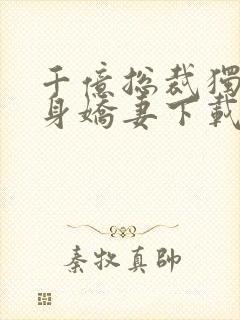 千億总裁獨
身嬌妻下載
秦牧真帥